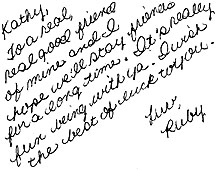 Kathy,
To a real,
real good friend
of mine and I
hope we'll stay friends
for a long time. It's really
fun being with ya. I wish
the best of luck to you.
Luv,
Ruby